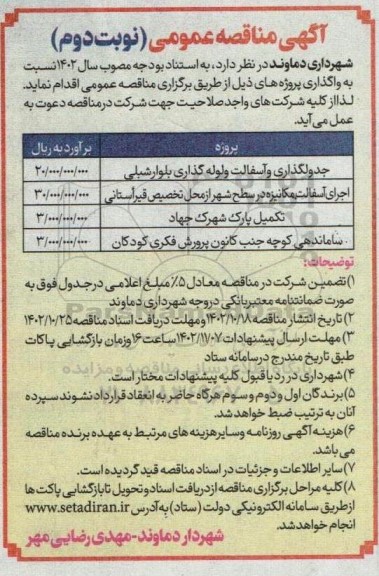 آگهی مناقصه عمومی (نوبت دوم)
شهرداری دماوند در نظر دارد، به استناد بودجه مصوب سال ۱۴۰۲ نسبت
به واگذاری پروژه های ذیل از طریق برگزاری مناقصه عمومی اقدام نماید.
لذا از کلیه شرکت های واجد صلاحیت جهت شرکت در مناقصه دعوت به
عمل می آید.
پروژه	برآورد به ریال
جدولگذاری و آسفالت و لوله گذاری بلوار شبلی	۲۰/۰۰۰/۰۰۰/۰۰۰
اجرای آسفالت مکانیزه در سطح شهر از محل تخصیص قیر استانی	۳۰/۰۰۰/۰۰۰/۰۰۰
تکمیل پارک شهرک جهاد	۳/۰۰۰/۰۰۰/۰۰۰
ساماندهی کوچه جنب کانون پرورش فکری کودکان	۳/۰۰۰/۰۰۰/۰۰۰
توضیحات:
۱) تضمین شرکت در مناقصه معادل ۵٪ مبلغ اعلامی در جدول فوق به
صورت ضمانتنامه معتبر بانکی در وجه شهرداری دماوند
۲) تاریخ انتشار مناقصه ۱۴۰۲/۱۰/۱۸ و مهلت دریافت اسناد مناقصه ۱۴۰۲/۱۰/۲۵
۳) مهلت ارسال پیشنهادات ۱۴۰۲/۱۱/۰۷ ساعت ۱۶ و زمان بازگشایی پاکات
طبق تاریخ مندرج در سامانه ستاد
۴) شهرداری در رد یا قبول کلیه پیشنهادات مختار است.
۵) برندگان اول و دوم و سوم هرگاه حاضر به انعقاد قرارداد نشوند سپرده
آنان به ترتیب ضبط خواهد شد.
۶) هزینه آگهی روزنامه و سایر هزینه های مرتبط به عهده برنده مناقصه
می باشد.
۷) سایر اطلاعات و جزئیات در اسناد مناقصه قید گردیده است.
۸) کلیه مراحل برگزاری مناقصه از دریافت اسناد و تحویل تا بازگشایی پاکت ها
از طریق سامانه الکترونیکی دولت (ستاد) به آدرس www.setadiran.ir
انجام خواهد شد.
شهردار دماوند-مهدی رضایی مهر